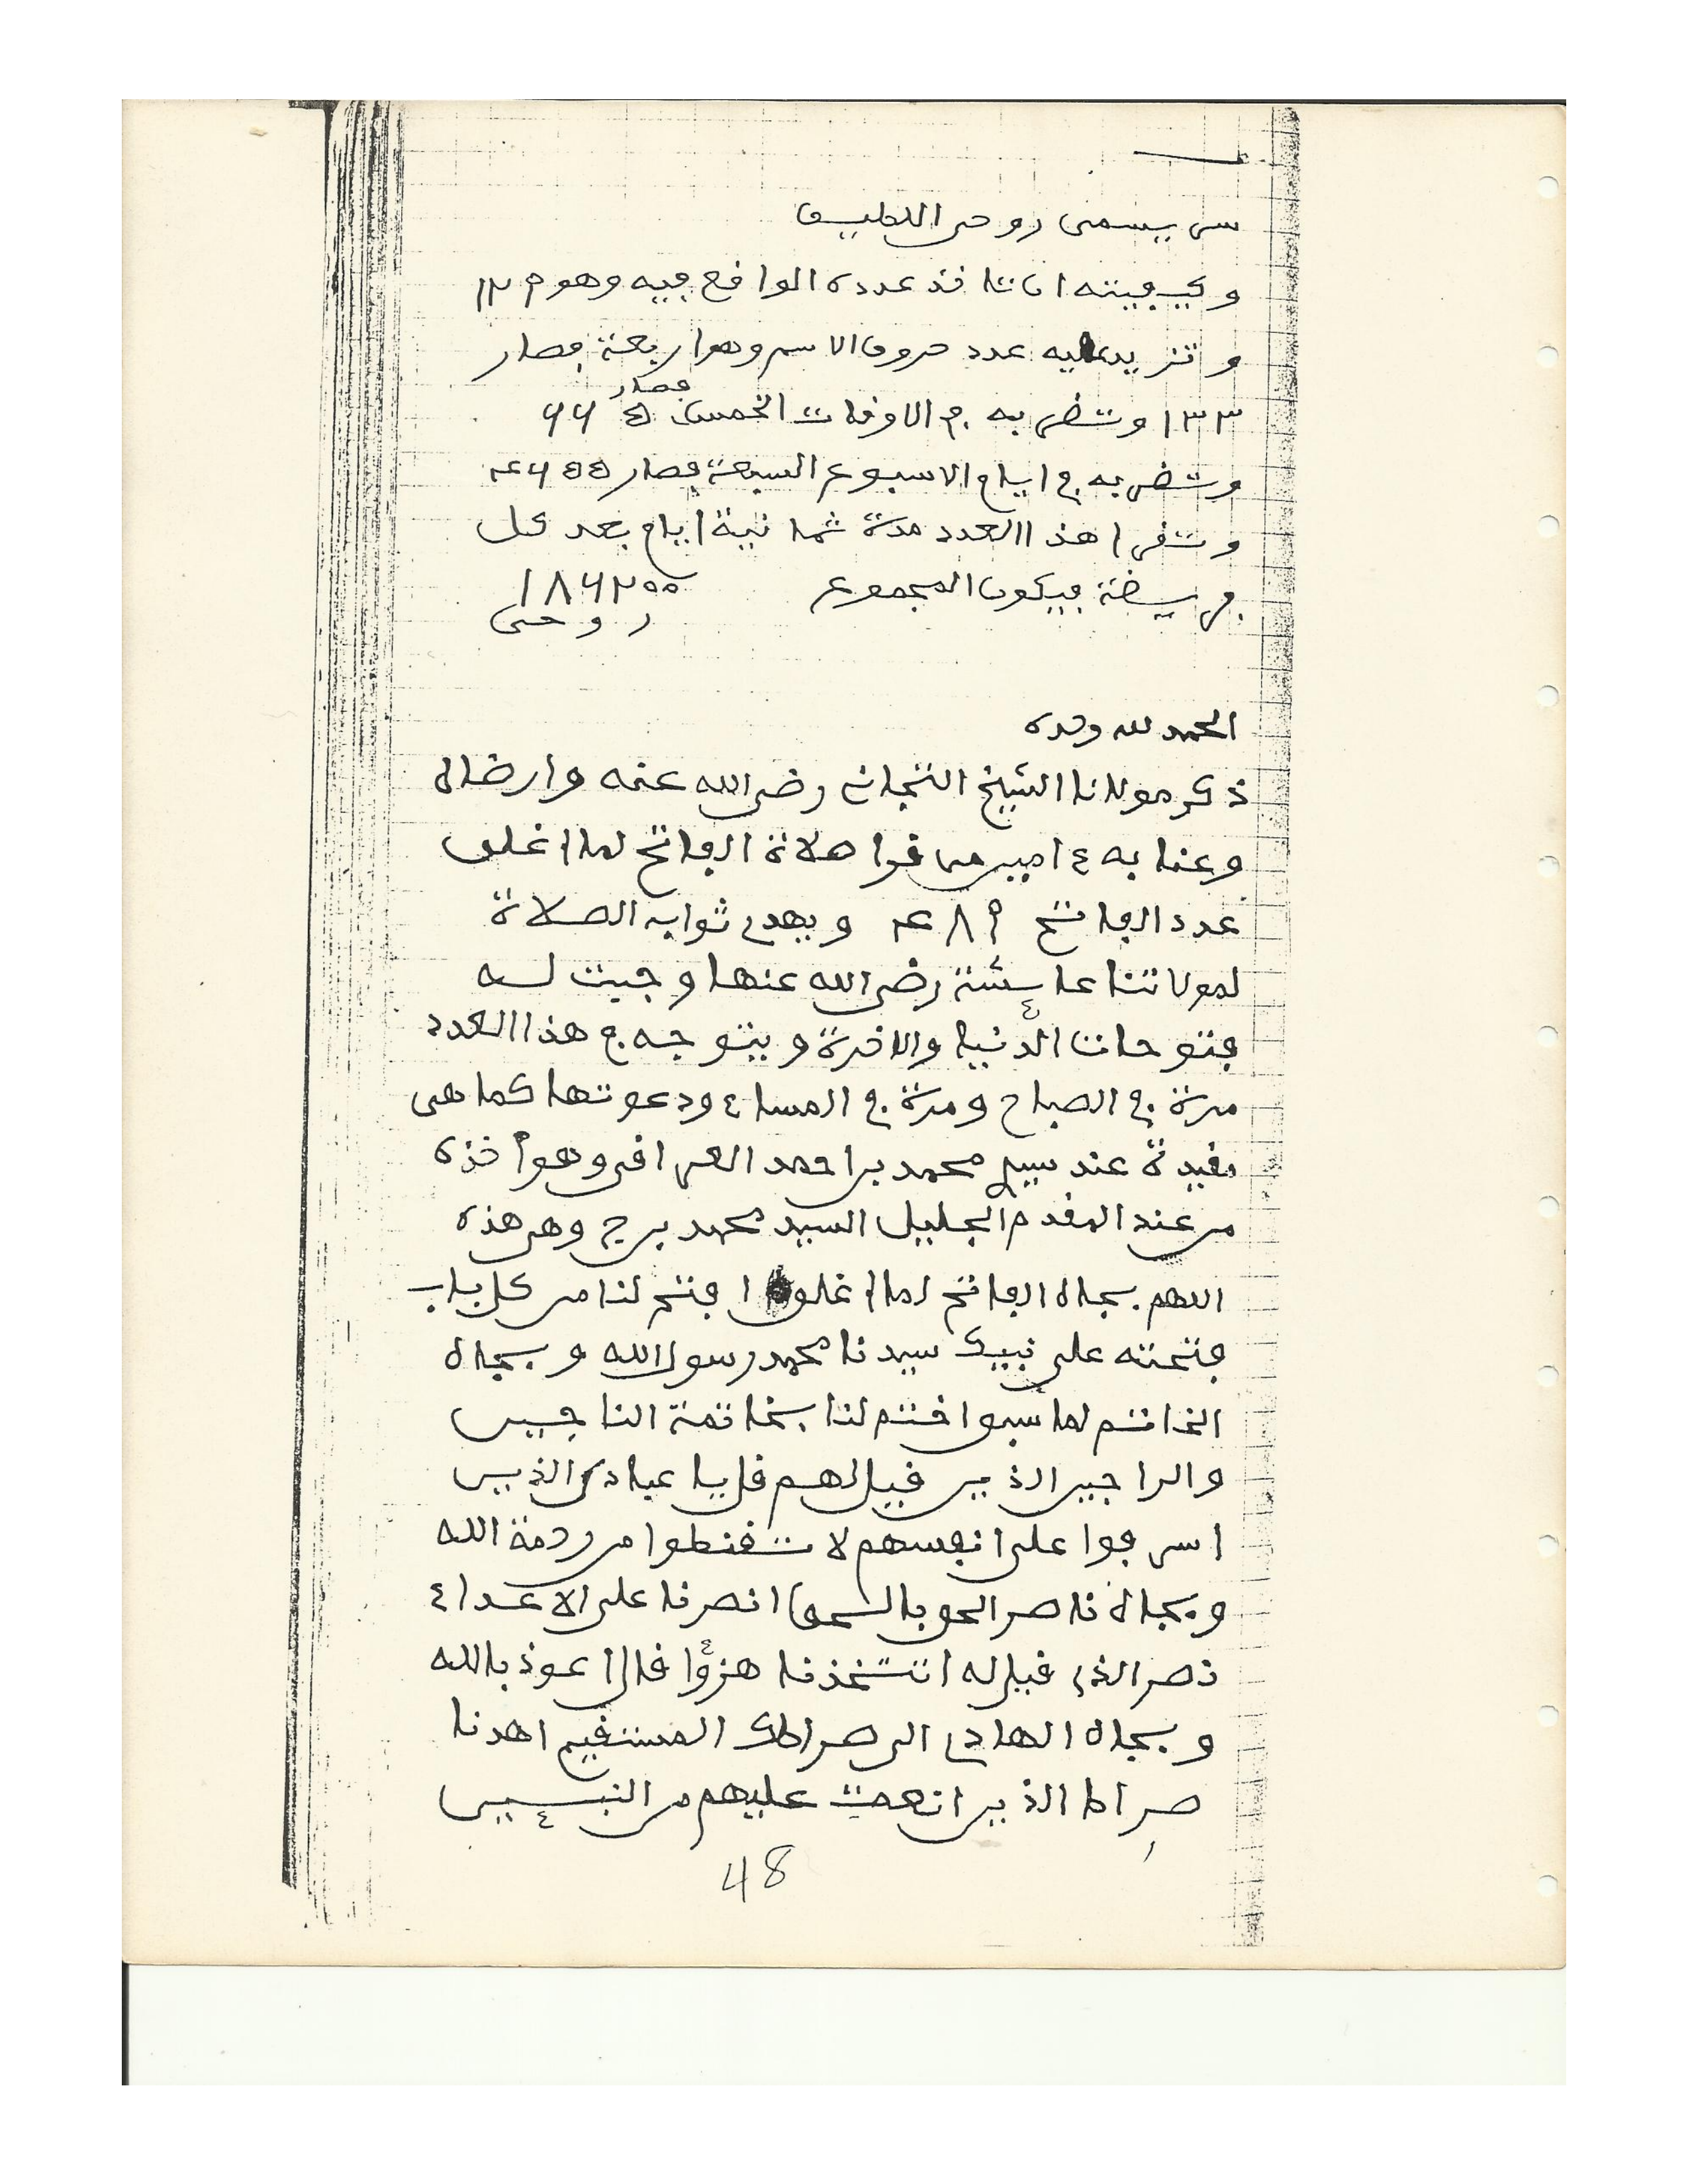 سر يسمى روحي اللطيف
وكيفيته ان تاخذ عدده الواقع فيه وهو ١٢٩
وتزيد عليه عدد حروف الاسم وهو اربعة فصار
١٣٣ وتضربه في الاوقات الخمس فصار ٦٦٥
وتضربه في ايام الاسبوع السبعة فصار ٤٦٥٥
وتقرا هذا العدد مدة ثمانية ايام بعد كل
فريضة فيكون المجموع ١٨٦٢٠٠
روحي
الحمد لله وحده
ذكر مولانا الشيخ التجاني رضي الله عنه وارضاه
وعنا به ءامين من قرا صلاة الفاتح لما اغلق
عدد الفاتح ٤٨٩ ويهدي ثواب الصلاة
لمولاتنا عائشة رضي الله عنها وجبت له
فتوحات الدنيا والاخرة ويتوجه في هذا العدد
مرة في الصباح ومرة في المساء ودعوتها كما هي
مقيدة عند سيدي محمد بن احمد العراقي وهو أخذه
من عند المقدم الجليل السيد محمد برج وهي هذه
اللهم بجاه الفاتح لما اغلق افتح لنا من كل باب
فتحته على نبيك سيدنا محمد رسول الله وبجاه
الخاتم لما سبق اختم لنا بخاتمة الناجين
والراجين الذين قيل لهم قل يا عبادي الذين
اسرفوا على انفسهم لا تقنطوا من رحمة الله
وبجاه ناصر الحق بالحق انصرنا على الاعداء
نصر الذي قيل له اتتخذنا هزؤا قال اعوذ بالله
وبجاه الهادي الى صراطك المستقيم اهدنا
صراط الذين انعمت عليهم من النبيئين
48